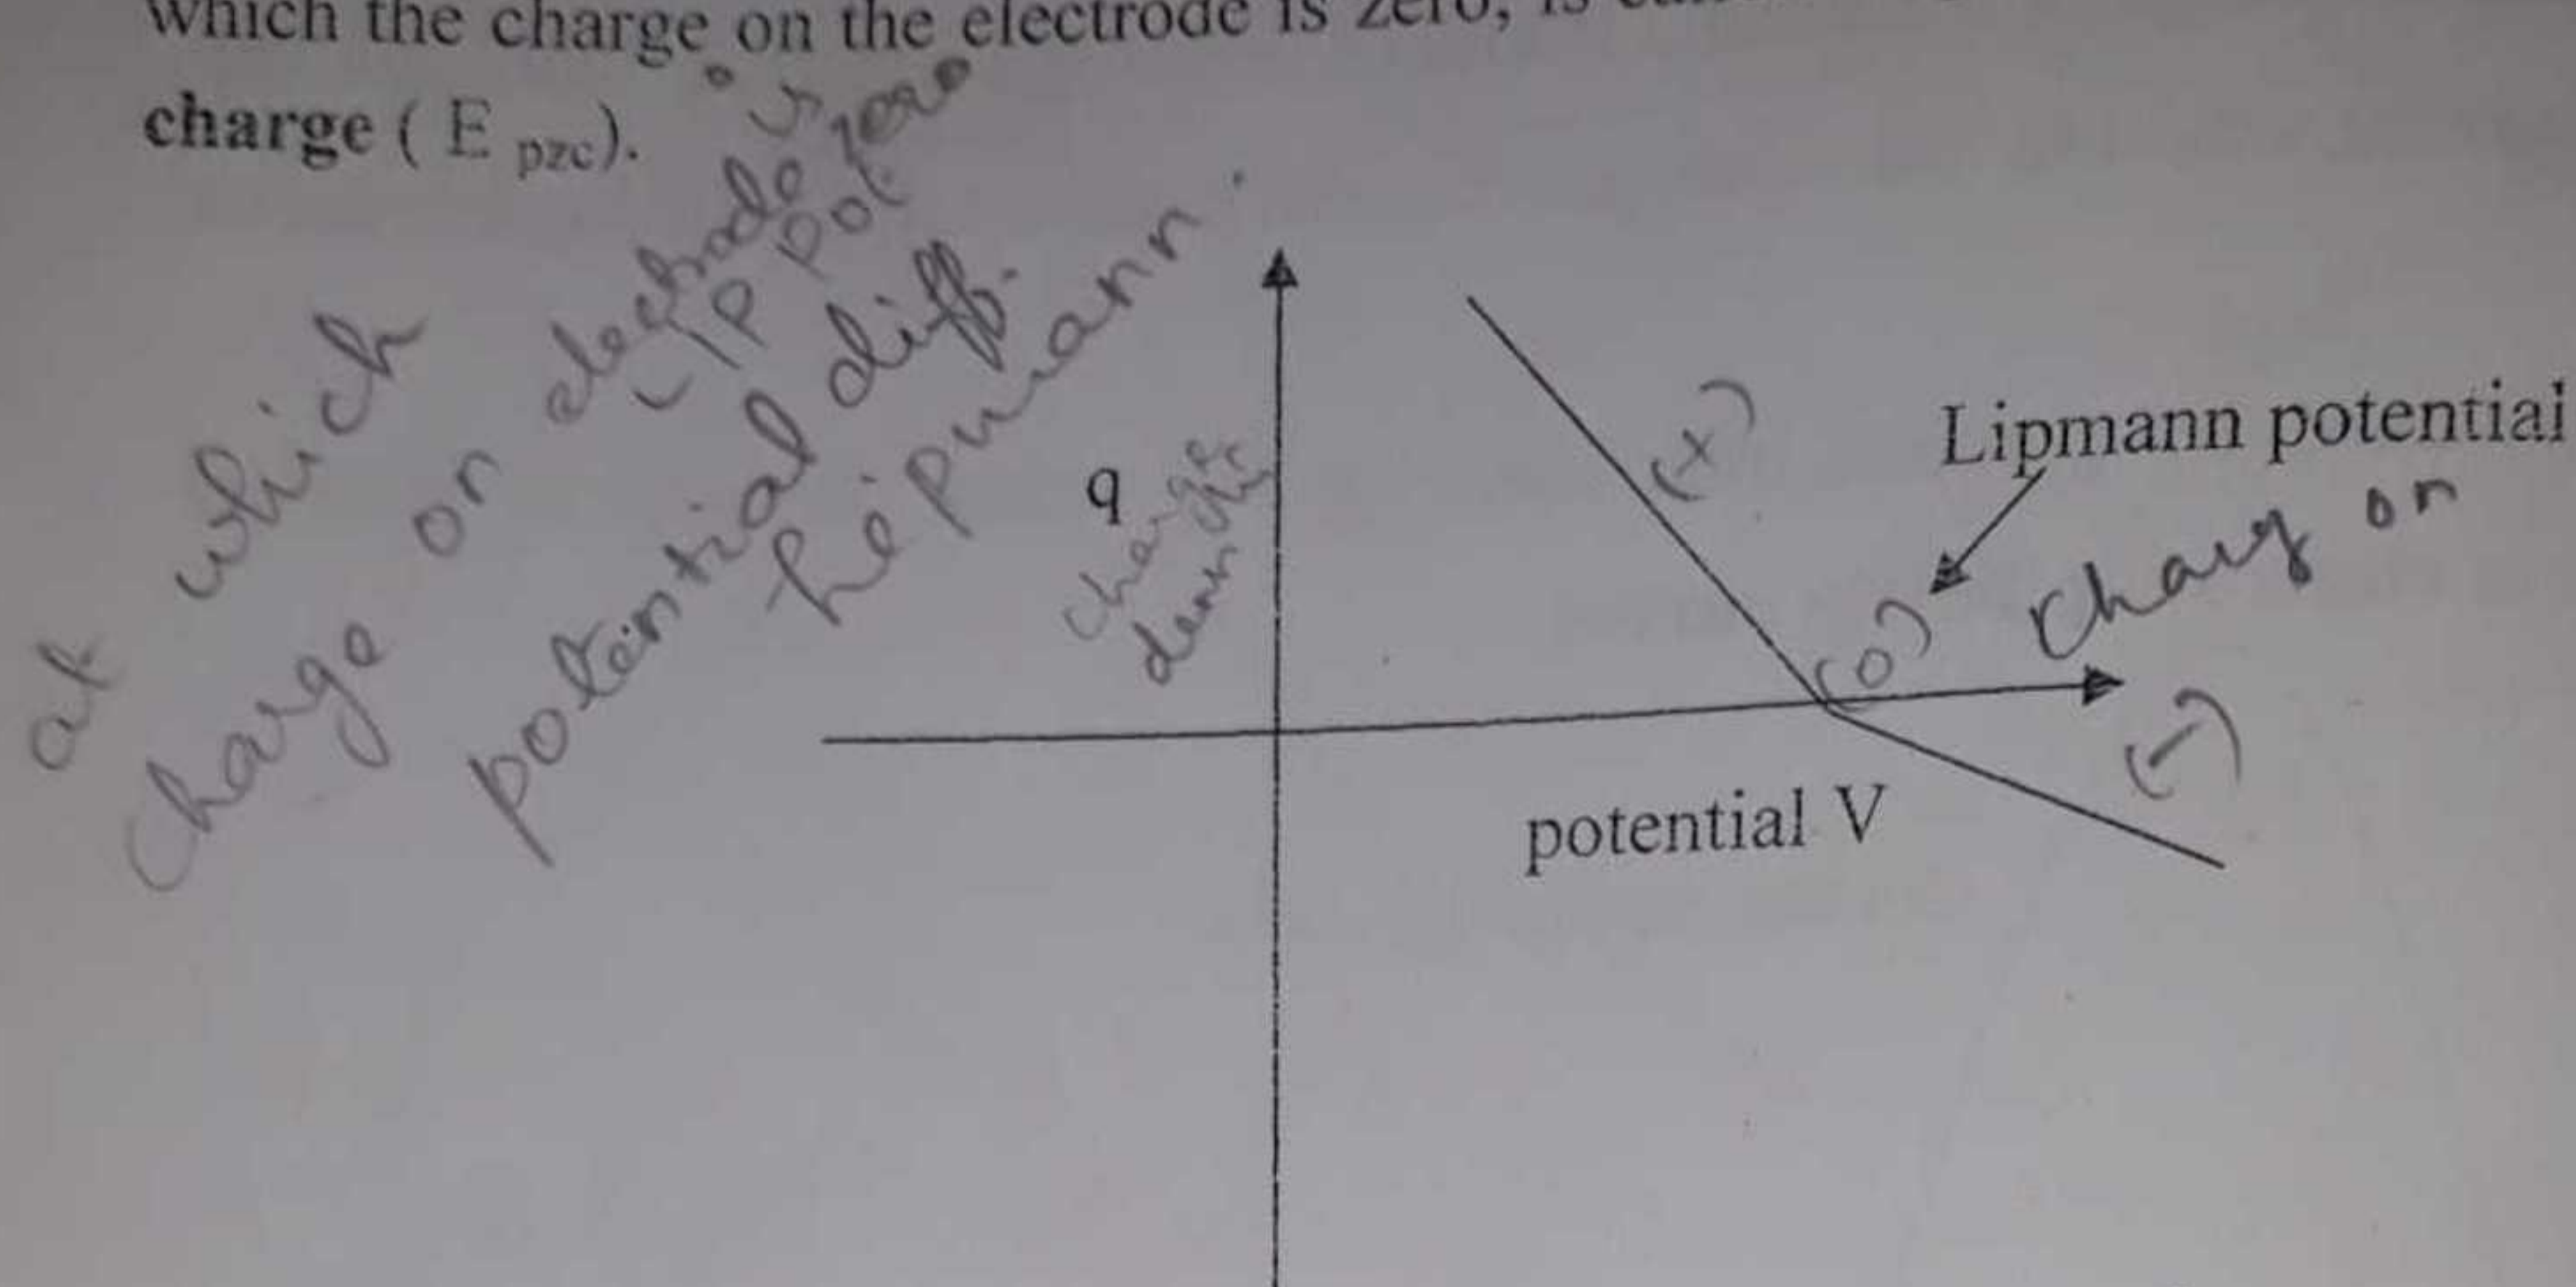 which the charge on the electrode is zero, is
charge ( E pzc).
at which
charge on electrode is zero
pot
potential diff.
Lipmann.
q
charge
(+)
Lipmann potential
(0)
Charg on
(-)
potential V